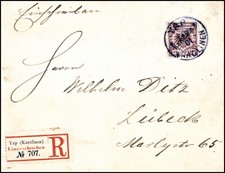 Einschreiben
YAP
KAROLINEN
Herrn
Wilhelm Ditz
Lübeck
Marlystr 65
Yap (Karolinen)
Einschreiben
№ 707.
R